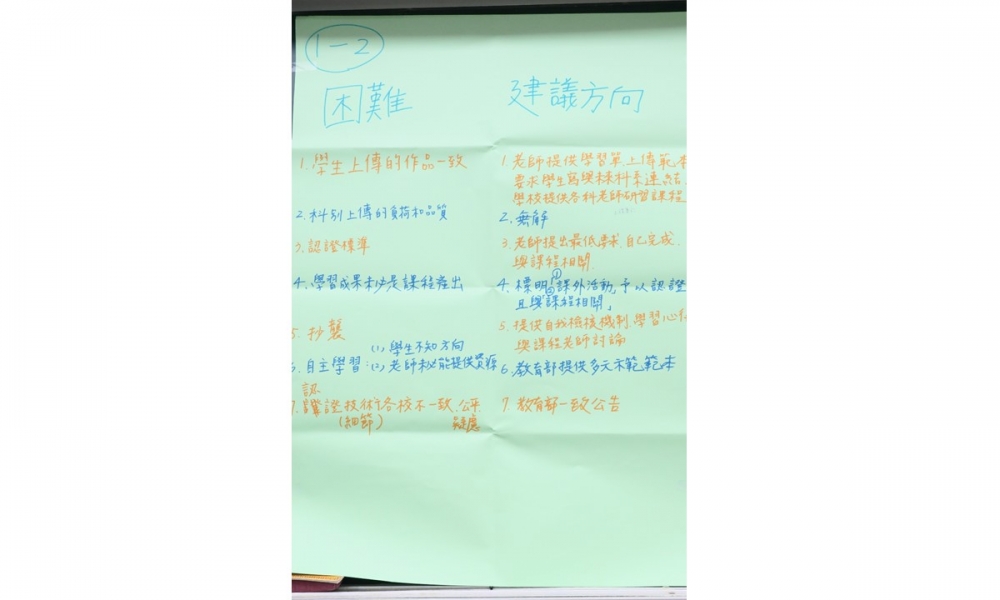 1-2
困難
1. 學生上傳的作品一致
2. 科別上傳的負荷和品質
3. 認證標準
4. 學習成果未必是課程產出
5. 抄襲
自主學習:(1) 學生不知方向
(2) 老師未必能提供資源
認
證技術各校不一致、公平
(細節) 疑慮
建議方向
1. 老師提供學習單上傳範本
要求學生寫與科系連結
學校提供各科老師研習課程
2. 無解
3. 老師提出最低要求、自己完成、
與課程相關
4. 標明「課外活動」予以認證
且與課程相關」
5. 提供自我檢核機制 學習心
與課程老師討論
6. 教育部提供多元示範範本
7. 教育部一致公告